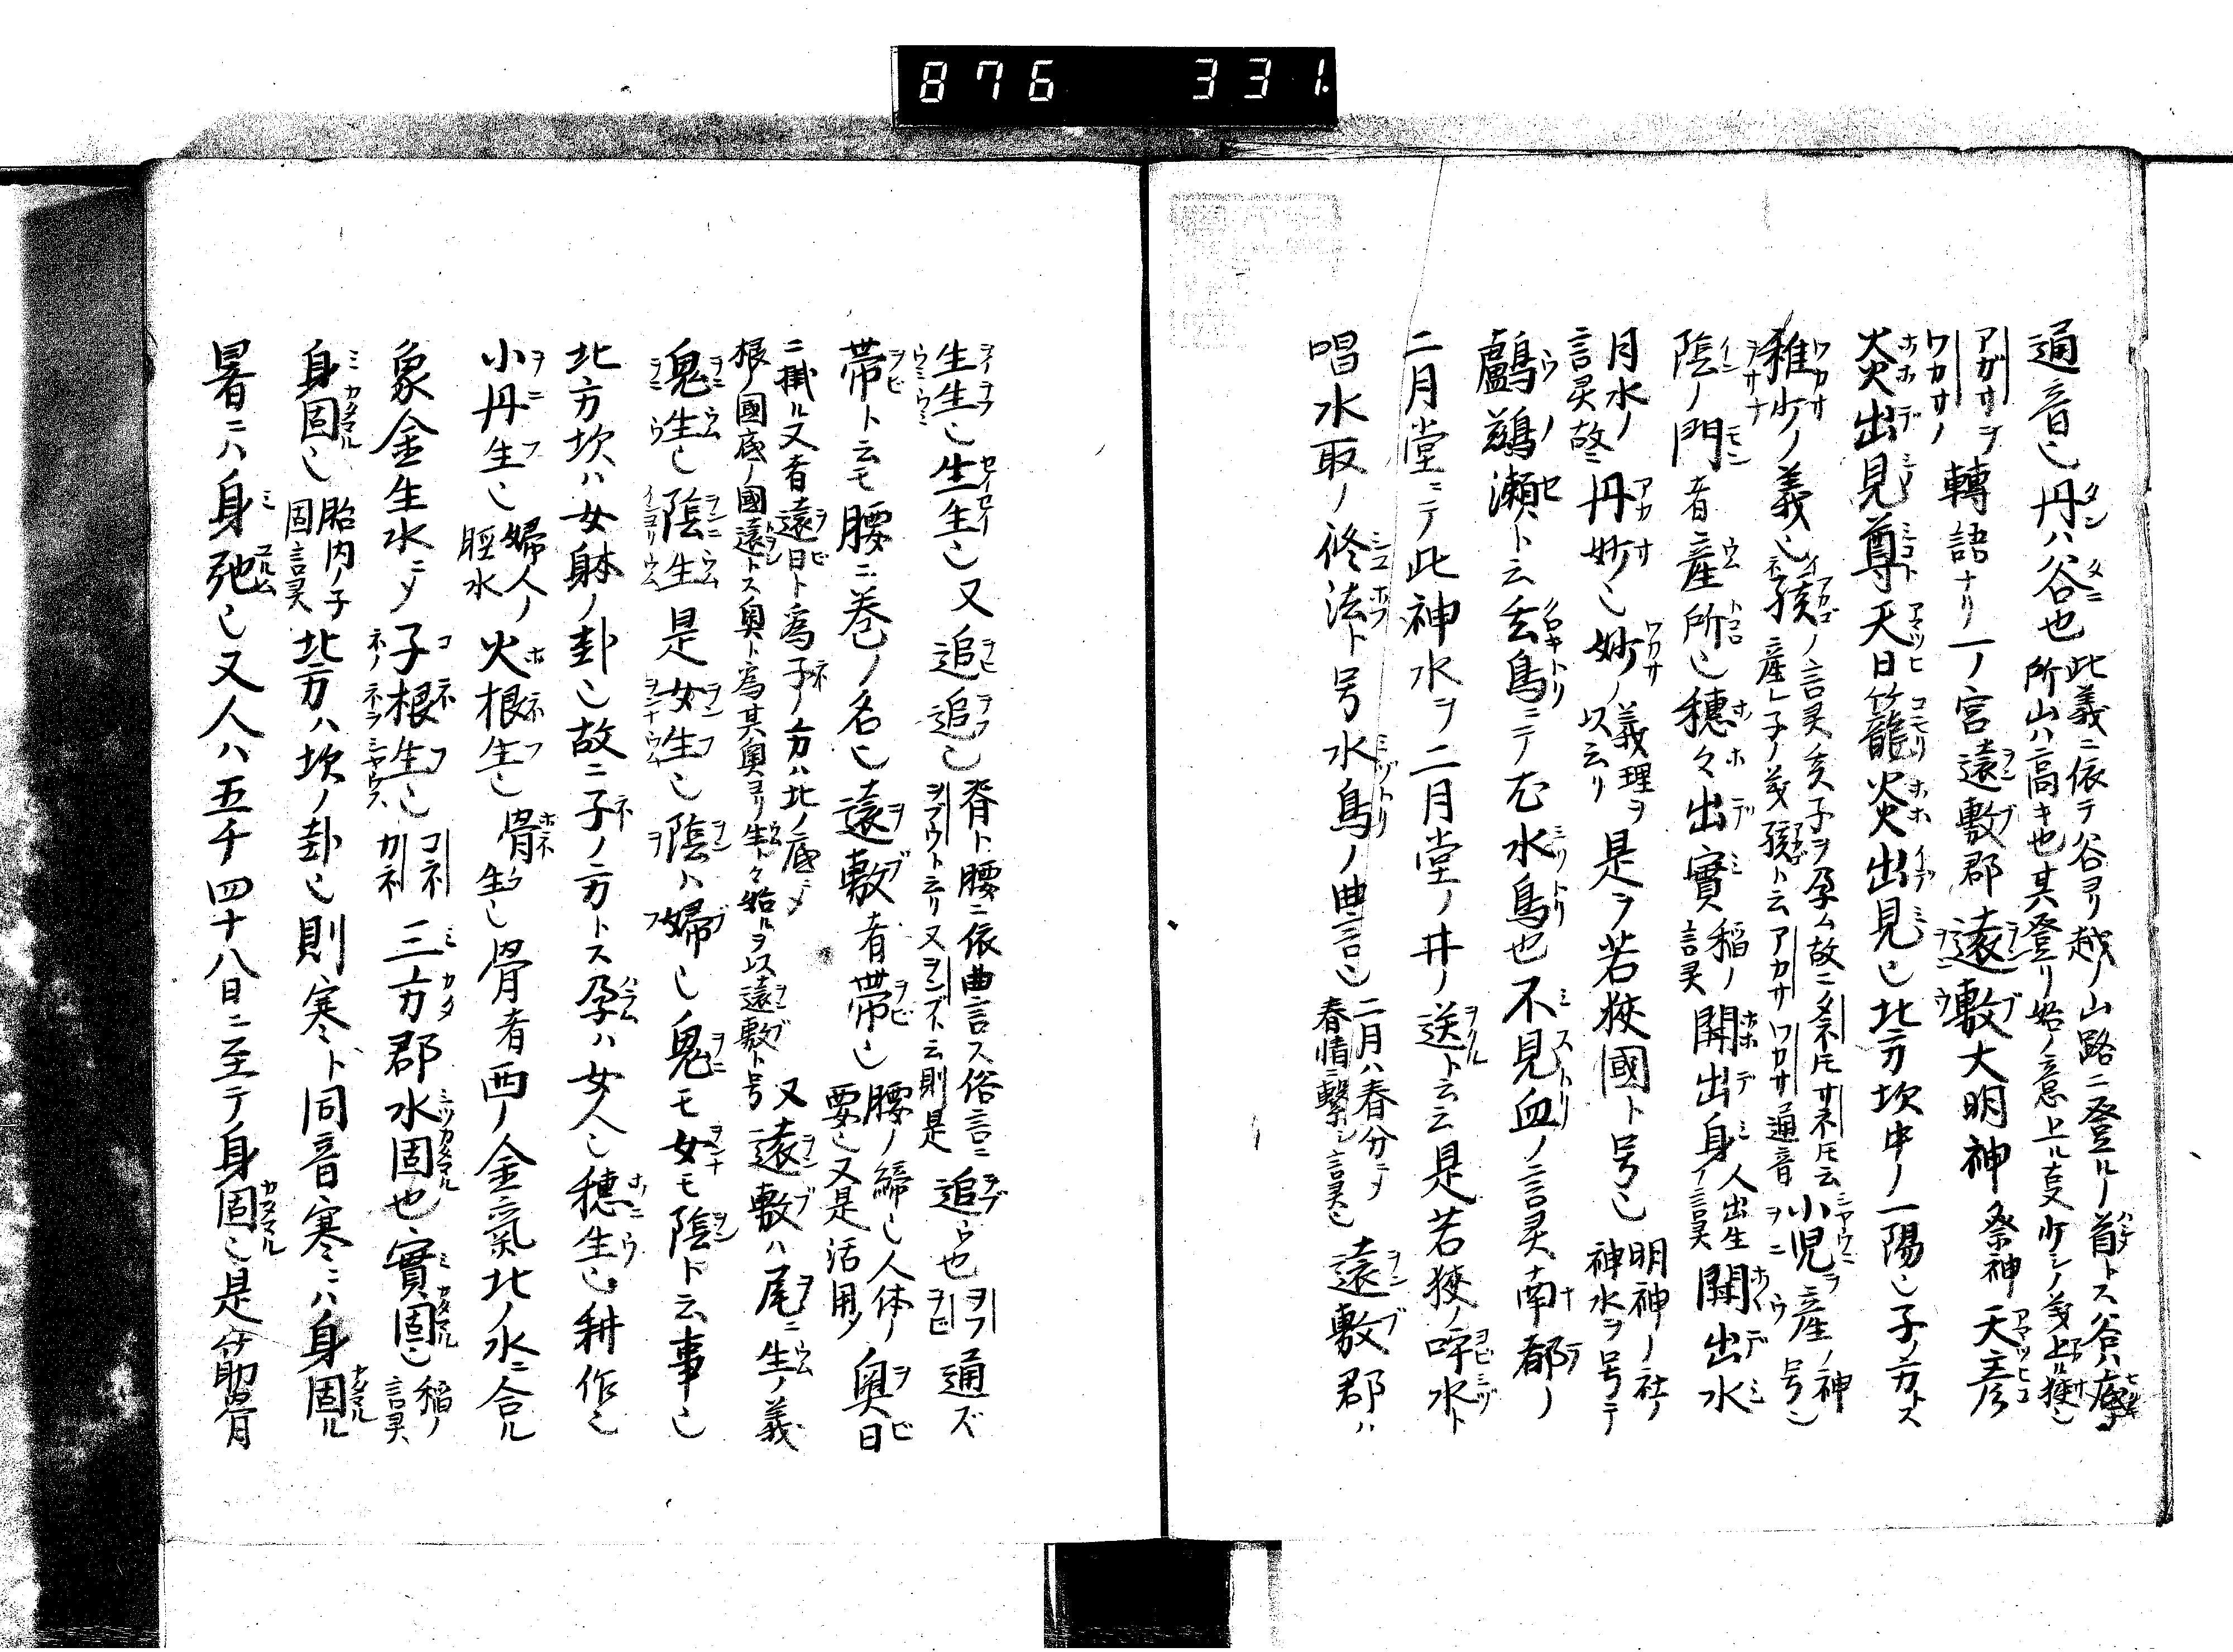 876 331
通音也丹ハ谷也此義ニ依テ谷ヨリ越ノ山路ニ登ルノ首トス谷ハ
所山ハ高キ也其登リ始ノ意上ル
アガサヲ轉語ナリ一ノ宮遠敷郡遠敷大明神祭神天彦
ワカサノ
火火出見尊天日籠火火出見也北方坎中ノ一陽也子ノ方トス
稚少ノ義也孩ノ言灵亥子ヲ孕ム故ニ
産レ子ノ義孩ト云アカサワカサ通音小児ヲ産ノ神号也
陰ノ門者産所也穂々出實稲ノ言灵開出身人出生ノ言灵開出水
月水ノ言灵故ニ丹妙也妙ノ義理ヲ以云リ是ヲ若狭國ト号也明神ノ社ノ神水ヲ号テ
鸕鷀瀬ト云玄鳥ニテ水鳥也不見血ノ言灵南都ノ
二月堂ニテ此神水ヲ二月堂ノ井ノ送ト云云是若狭ノ呼水ト
唱水取ノ修法ト号水鳥ノ曲言也二月ハ春分ニ〆春情ニ繫シ言灵也遠敷郡ハ
生生也生生也又追追也脊ト腰ニ依曲言ス俗言ニヲブウト云リ又ヲンブト云則是追フ也ヲフヲビ通ズ
帯ト云モ腰ニ巻ノ名也遠敷者帯也腰ノ締也人体ノ要也又是活用ノ奥日
ニ掛ル又者遠日ト為子ノ方ハ北ノ底ニ〆
根ノ國底ノ國遠トス奥ト為其奥ヨリ生ト々始ルヲ以遠敷ト号又遠敷ハ尾ニ生ノ義
鬼生也陰生是女生也陰ハ婦也鬼モ女モ陰ト云事也
北方坎ハ女躰ノ卦也故ニ子ノ方トス孕ハ女人也穂生也耕作也
小丹生也婦人ノ経水火根生也骨生也骨者西ノ金氣北ノ水ニ合ル
象金生水ニ〆子根生也コネカネ三方郡水固也實固也稲ノ言灵
身固也胎内ノ子固言灵北方ハ坎ノ卦也則寒ト同音寒ニハ身固ル
暑ニハ身弛也又人ハ五千四十八日ニ至テ身固也是筋骨